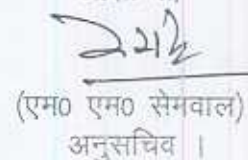 (एम0 एम0 सेमवाल)
अनुसचिव ।